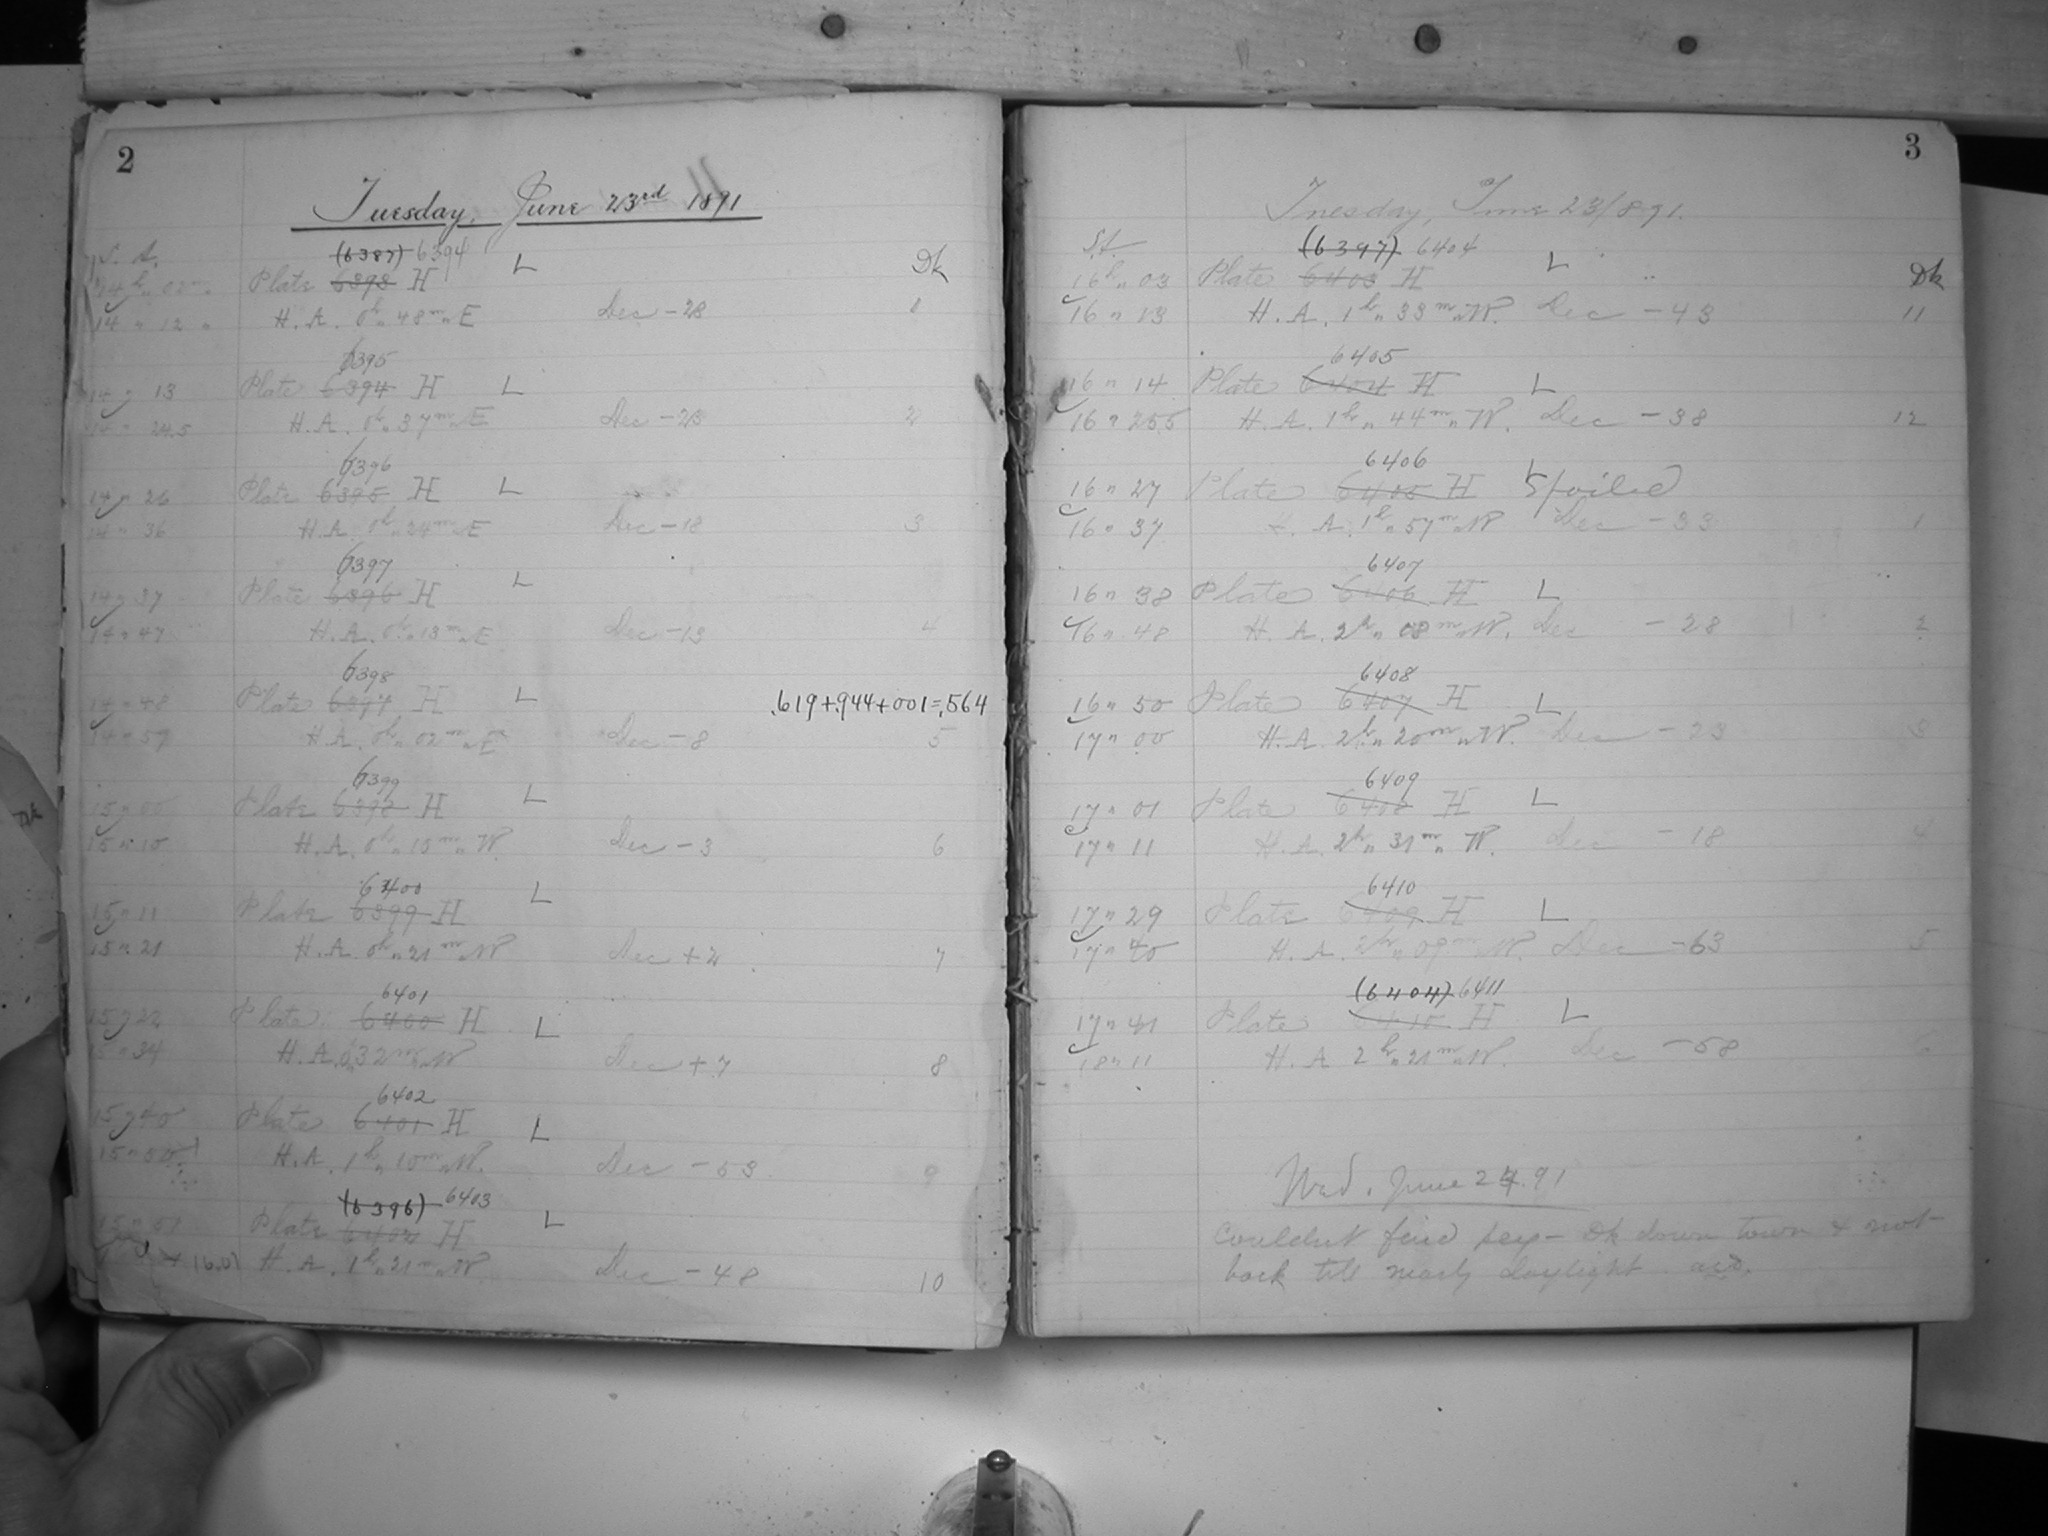 2
Tuesday, June 23rd 1891
S. T.
(6387) 6394
Plate 6393 H L Dk
14 " 12 " H. A. 0h " 48m " E Dec - 28 1
6395
14 " 13 Plate 6394 H L
14 " 24.5 H. A. 0h " 37m " E Dec - 23 2
6396
14 " 26 Plate 6395 H L
14 " 36 H. A. 0h " 24m " E Dec - 18 3
6397
14 " 37 Plate 6396 H L
14 " 47 H. A. 0h " 13m " E Dec - 13 4
6398
14 " 48 Plate 6397 H L .619+.944+001=.564
14 " 59 H. A. 0h " 02m " E Dec - 8 5
6399
15 " 00 Plate 6398 H L
15 " 10 H. A. 0h " 10m " W. Dec - 3 6
6400
15 " 11 Plate 6399 H L
15 " 21 H. A. 0h " 21m " W Dec + 2 7
6401
15 " 22 Plate 6400 H L
15 " 34 H. A. 0h " 32m " W Dec + 7 8
6402
15 " 40 Plate 6401 H L
15 " 50 H. A. 1h " 10m " W. Dec - 53 9
(6396) 6403
Plate 6402 H L
16.01 H. A. 1h " 21m " W. Dec - 48 10
3
Tuesday, June 23/891.
S.t.
(6397) 6404
16h " 03 Plate 6403 H L Dk
16 " 13 H. A. 1h " 33m " W. Dec - 43 11
6405
16 " 14 Plate 6404 H L
16 " 25.5 H. A. 1h " 44m " W. Dec - 38 12
6406 L
16 " 27 Plate 6405 H Spoiled
16 " 37 H. A. 1h " 57m " W Dec - 33 1
6407
16 " 38 Plate 6406 H L
16 " 48 H. A. 2h " 08m " W. Dec - 28 2
6408
16 " 50 Plate 6407 H L
17 " 00 H. A. 2h " 20m " W. Dec - 23 3
6409
17 " 01 Plate 6408 H L
17 " 11 H. A. 2h " 31m " W. Dec - 18 4
6410
17 " 29 Plate 6409 H L
17 " 40 H. A. 2h " 09m " W. Dec - 63 5
(6404) 6411
17 " 41 Plate 6410 H L
18 " 11 H. A 2h " 21m " W. Dec - 58
Wed. June 24. 91
Couldn't find key - Dk down town & not
back till nearly daylight.